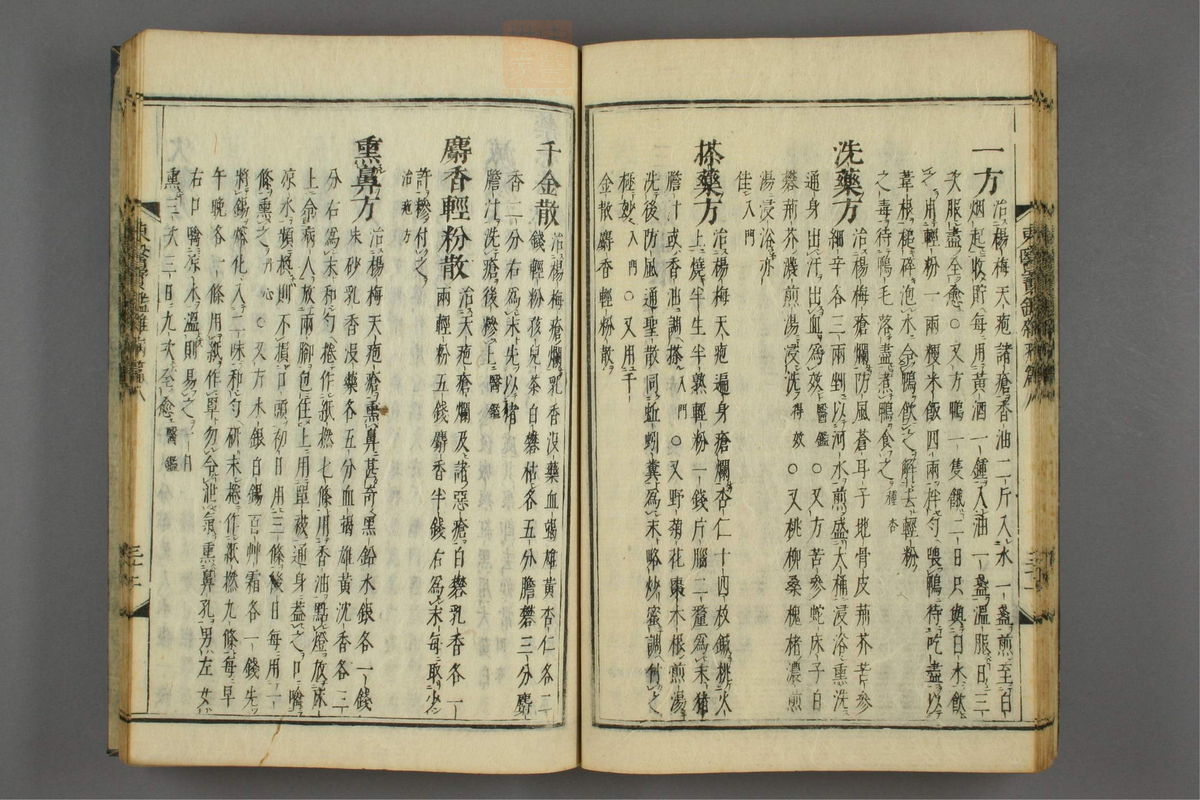 一方治楊梅天疱諸瘡香油二斤入水一盞煎至白
烟起收貯每用黃酒一鍾入油一盞溫服日三
次服盡全愈○又方鴨一隻餓二日只與白水飲
之用輕粉一兩粳米飯四兩拌勻喂鴨待吃盡以
葦根槌碎泡水令鴨飲之解去輕粉
之毒待鴨毛落盡煮鴨食之種杏
洗藥方治楊梅瘡爛防風蒼耳子地骨皮荊芥苦參
細辛各三兩剉以河水煎盛大桶浸浴熏洗
通身出汗出血爲效醫鑑○又方苦參蛇床子白
礬荊芥濃煎湯浸洗得效○又桃柳桑槐楮濃煎
湯浸浴亦
佳入門
搽藥方治楊梅天疱遍身瘡爛杏仁十四枚鍼桃火
上燒半生半熟輕粉一錢片腦二釐爲末猪
膽汁或香油調搽入門○又野菊花棗木根煎湯
洗後防風通聖散同蚯蚓糞爲末略炒蜜調付之
極妙入門○又用千
金散麝香輕粉散
千金散治楊梅瘡爛乳香沒藥血竭雄黃杏仁各二
錢輕粉孩兒茶白礬枯各五分膽礬三分麝
香二分右爲末先以猪
膽汁洗瘡後糝上醫鑑
麝香輕粉散治天疱瘡爛及諸惡瘡白礬乳香各一
兩輕粉五錢麝香半錢右爲末每取少
許糝付之
治疱方
熏鼻方治楊梅天疱瘡熏鼻甚奇黑鉛水銀各一錢
朱砂乳香沒藥各五分血竭雄黃沈香各三
分右爲末和勻捲作紙撚七條用香油點燈放床
上令病人放兩脚包住上用單被通身蓋之口噙
凉水頻換則不損口初日用三條後日每用一
條熏之丹心○又方水銀白錫百艸霜各一錢先
將錫熔化入二味和勻硏末捲作紙撚九條每早
午晚各一條用紙作罩勿令泄氣熏鼻孔男左女
右口噙凉水溫則易之一日
熏三次三日九次全愈醫鑑
東醫寶鑑雜病篇八